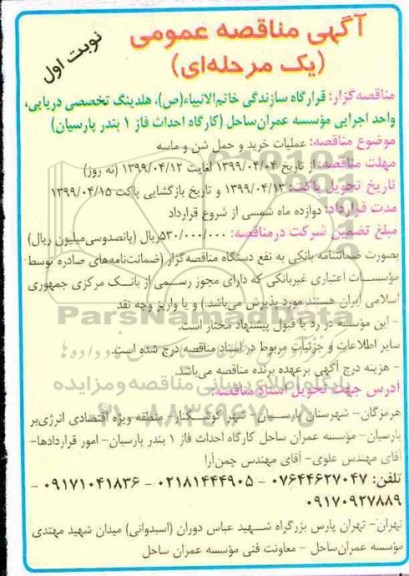 آگهی مناقصه عمومی
(یک مرحله‌ای)
نوبت اول
مناقصه‌گزار: قرارگاه سازندگی خاتم‌الانبیاء(ص)، هلدینگ تخصصی دریایی،
واحد اجرایی مؤسسه عمران‌ساحل (کارگاه احداث فاز ۱ بندر پارسیان)
موضوع مناقصه: عملیات خرید و حمل شن و ماسه
مهلت مناقصه: از تاریخ ۱۳۹۹/۰۴/۰۴ لغایت ۱۳۹۹/۰۴/۱۲ (نه روز)
تاریخ تحویل پاکت: ۱۳۹۹/۰۴/۱۳ و تاریخ بازگشایی پاکت ۱۳۹۹/۰۴/۱۵
مدت قرارداد: دوازده ماه شمسی از شروع قرارداد
مبلغ تضمین شرکت درمناقصه: ۵۳۰/۰۰۰/۰۰۰ریال (پانصدوسی‌میلیون ریال)
بصورت ضمانتنامه بانکی به نفع دستگاه مناقصه‌گزار (ضمانت‌نامه‌های صادره توسط
مؤسسات اعتباری غیربانکی که دارای مجوز رسمی از بانک مرکزی جمهوری
اسلامی ایران هستند مورد پذیرش می‌باشد.) و یا واریز وجه نقد
- این مؤسسه در رد یا قبول پیشنهاد مختار است.
سایر اطلاعات و جزئیات مربوط در اسناد مناقصه درج شده است.
- هزینه درج آگهی برعهده برنده مناقصه می‌باشد.
آدرس جهت تحویل اسناد مناقصه:
هرمزگان- شهرستان پارسیان- شهر کوشکنار- منطقه ویژه اقتصادی انرژی‌بر
پارسیان- مؤسسه عمران ساحل کارگاه احداث فاز ۱ بندر پارسیان- امور قراردادها-
آقای مهندس علوی- آقای مهندس چمن‌آرا
تلفن: ۰۷۶۴۴۶۲۷۰۴۷ - ۰۲۱۸۱۴۴۴۹۰۵ - ۰۹۱۷۱۰۴۱۸۳۶ -
۰۹۱۷۰۹۲۷۸۸۹
تهران- تهران پارس بزرگراه شهید عباس دوران (اسبدوانی) میدان شهید مهتدی
مؤسسه عمران‌ساحل - معاونت فنی مؤسسه عمران ساحل
ParsNamadData
پایگاه اطلاع رسانی مناقصه و مزایده
۰۲۱-۸۸۳۴۹۶۷۰-۵